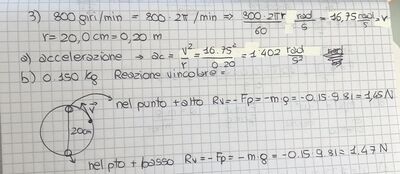 3) 800 giri/min = 800·2π /min ⇒ 800·2πr/60 rad/s = 16,75 rad/s = v
r= 20,0 cm = 0,20 m
a) accelerazione → ac = v²/r = 16.75²/0.20 = 1'402 rad/s²
b) 0.150 kg Reazione vincolare =
nel punto + alto Rv = - Fp = - m·g = - 0.15·9.81 = 1,45 N
v
20cm
nel pto + basso Rv = - Fp = - m·g = - 0.15·9.81 = 1.47 N